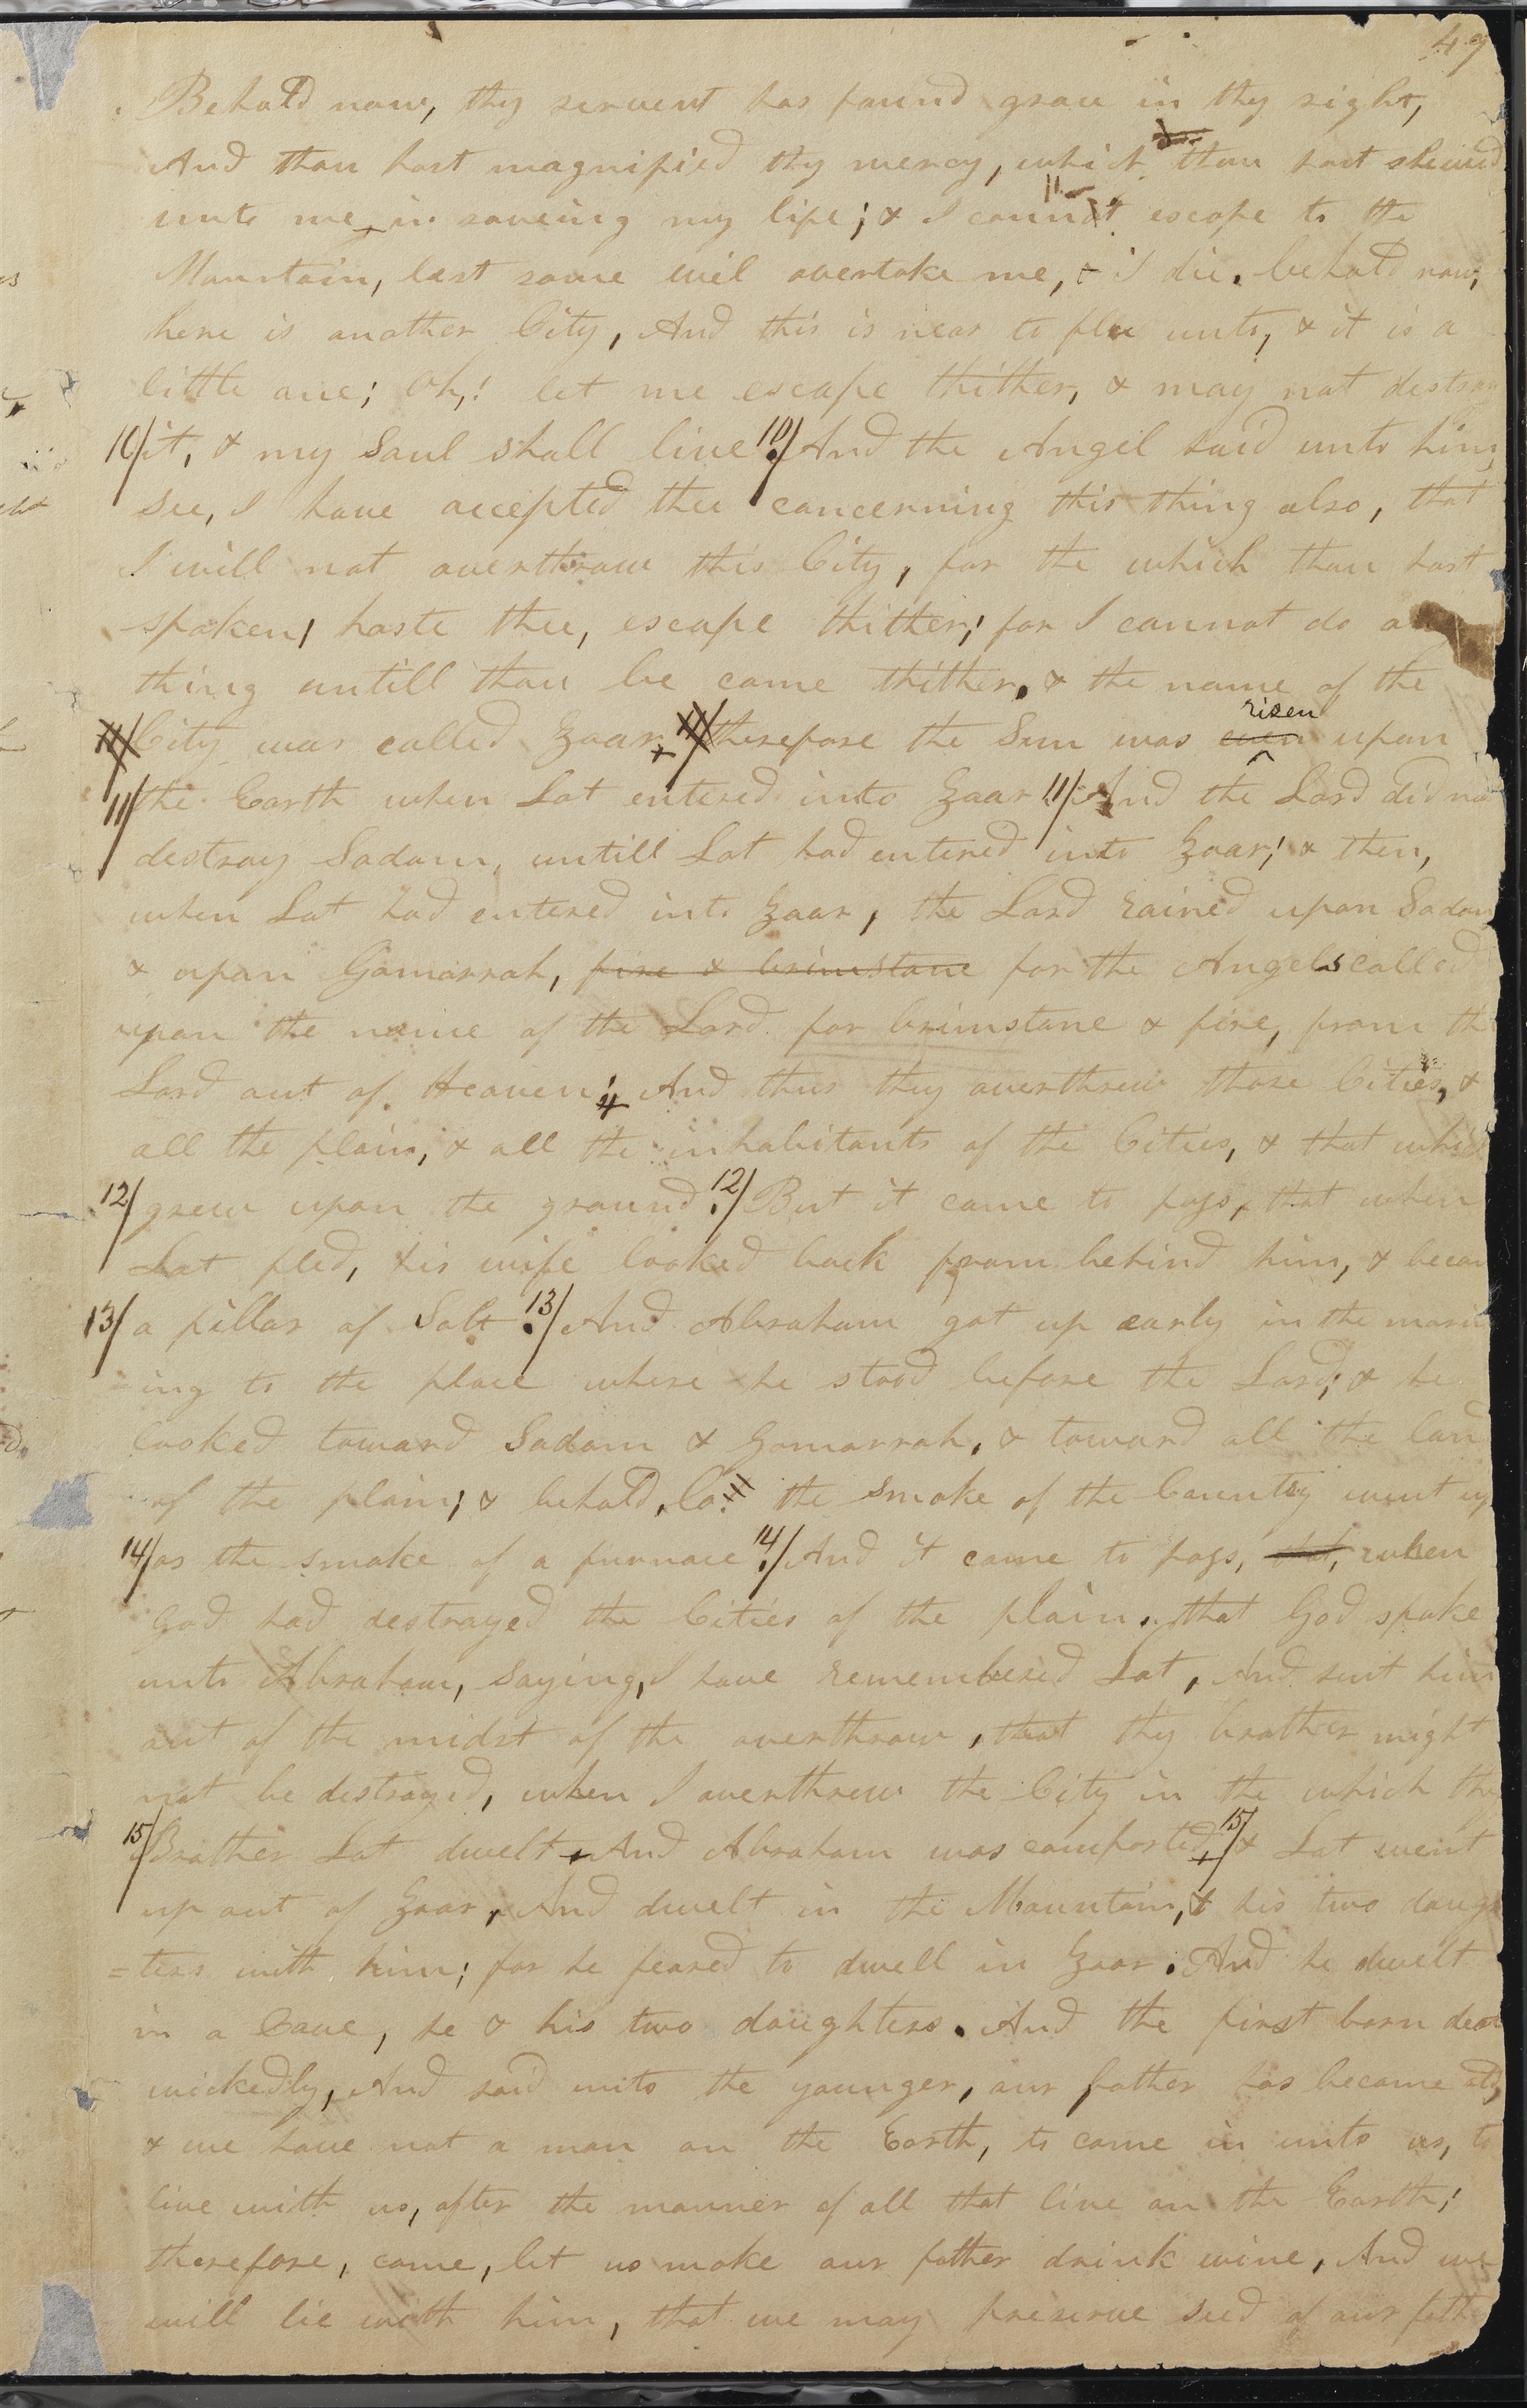 49
Behold now, thy servent has found grace in thy sight,
And thou hast magnified thy mercy, which thou hast shewed
unto me, in saveing my life; & I cannot escape to the
Mountain, last some evil overtake me, & I die. behold now,
here is another City, And this is near to flee unto, & it is a
little one; Oh,! let me escape thither, & may not destroy
10/ it, & my Soul shall live. 10/ And the Angel said unto him,
See, I have accepted thee concerning this thing also, that
I will not overthrow this City, for the which thou hast
spoken, haste thee, escape thither; for I cannot do any
thing untill thou be come thither. & the name of the
11/ City was called Zoar, 11/ therefore the Sun was even risen upon
11/ the Earth when Lot entered into Zoar. 11/ And the Lord did no
destroy Sodom, untill Lot had entered into Zoar; & then,
when Lot had entered into Zoar, the Lord rained upon Sodom
& upon Gomorrah, fire & brimstone for the Angels called
upon the name of the Lord for brimstone & fire, from the
Lord out of Heaven; And thus they overthrew those Cities, &
all the plain, & all the inhabitants of the Cities, & that which
12/ grew upon the ground. 12/ But it came to pass, that when
Lot fled, his wife looked back from behind him, & becam
13/ a pillar of Salt. 13/ And Abraham got up early in the morn
ing to the place where he stood before the Lord; & he
looked toward Sodom & Gomorrah, & toward all the land
of the plain; & behold, lo! the smoke of the Country went up
14/ as the smoke of a furnace. 14/ And it came to pass, that, when
God had destroyed the Cities of the plain, that God spake
unto Abraham, saying, I have remembered Lot, And sent him
out of the midst of the overthrow, that thy brother might
not be destroyed, when I overthrew the City in the which thy
15/ Brother Lot dwelt, And Abraham was comforted, 15/ & Lot went
up out of Zoar, And dwelt in the Mountain, & his two daugh
=ters with him; for he feared to dwell in Zoar. And he dwelt
in a Cave, he & his two daughters. And the first born dealt
wickedly, And said unto the younger, our father has become old,
& we have not a man on the Earth, to come in unto us, to
live with us, after the manner of all that live on the Earth;
therefore, come, let us make our father drink wine, And we
will lie with him, that we may preserve seed of our father